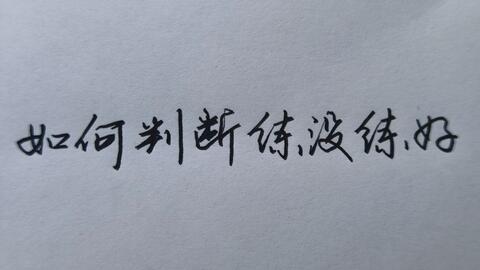 如何判断练没练好